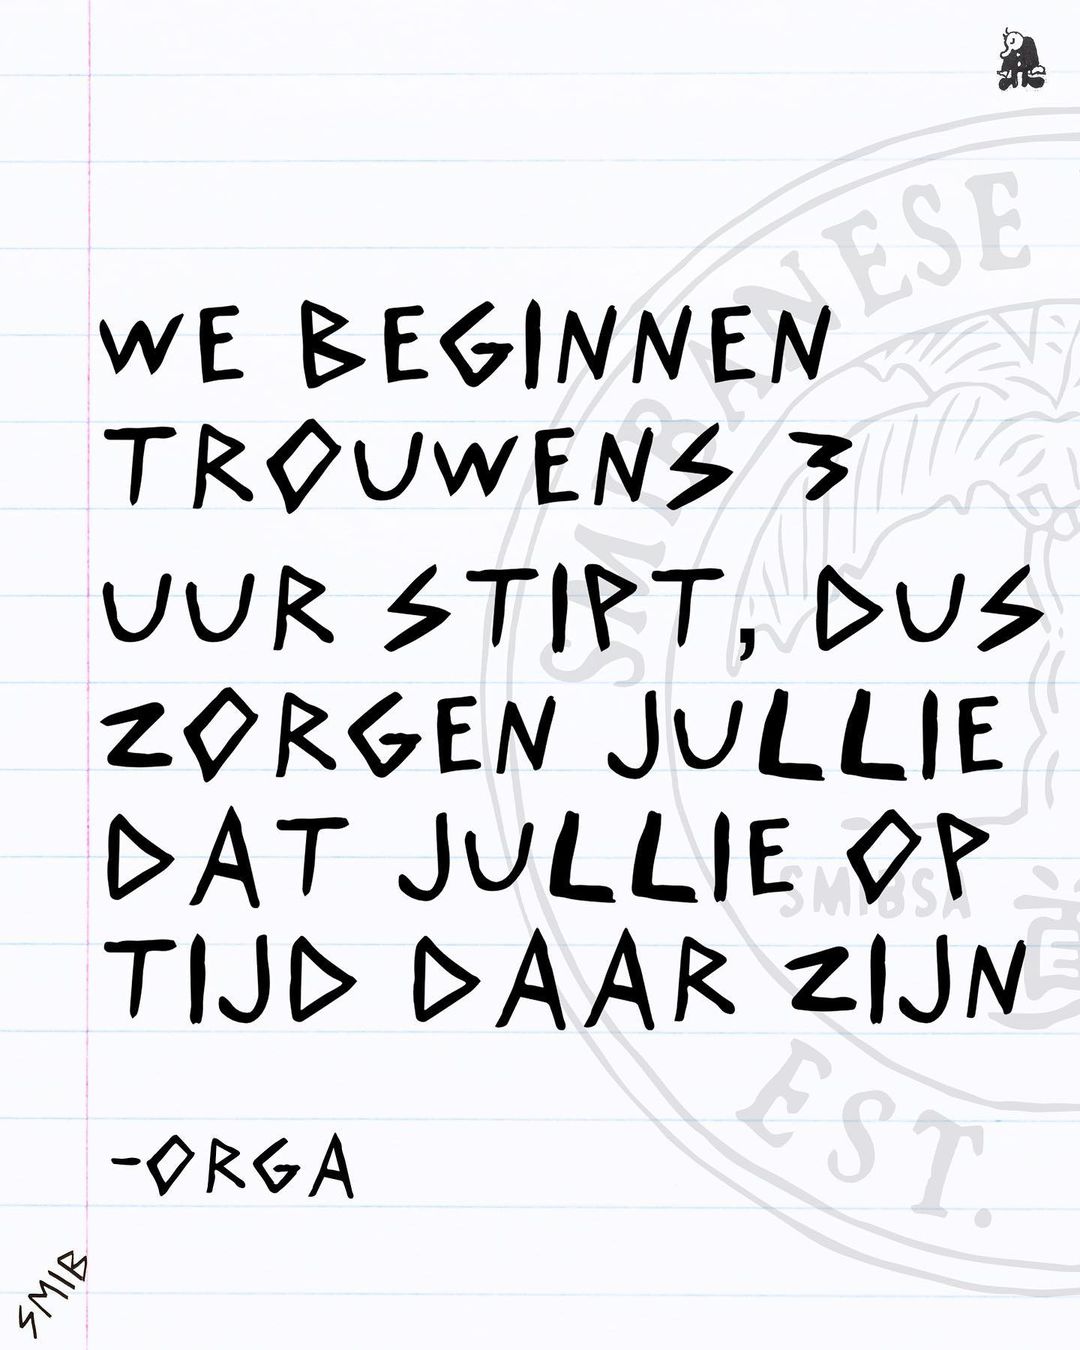 WE BEGINNEN
TROUWENS 3
UUR STIPT, DUS
ZORGEN JULLIE
DAT JULLIE OP
TIJD DAAR ZIJN
-ORGA
SMIB
SMIBANESE
SMIBSA
道
EST.